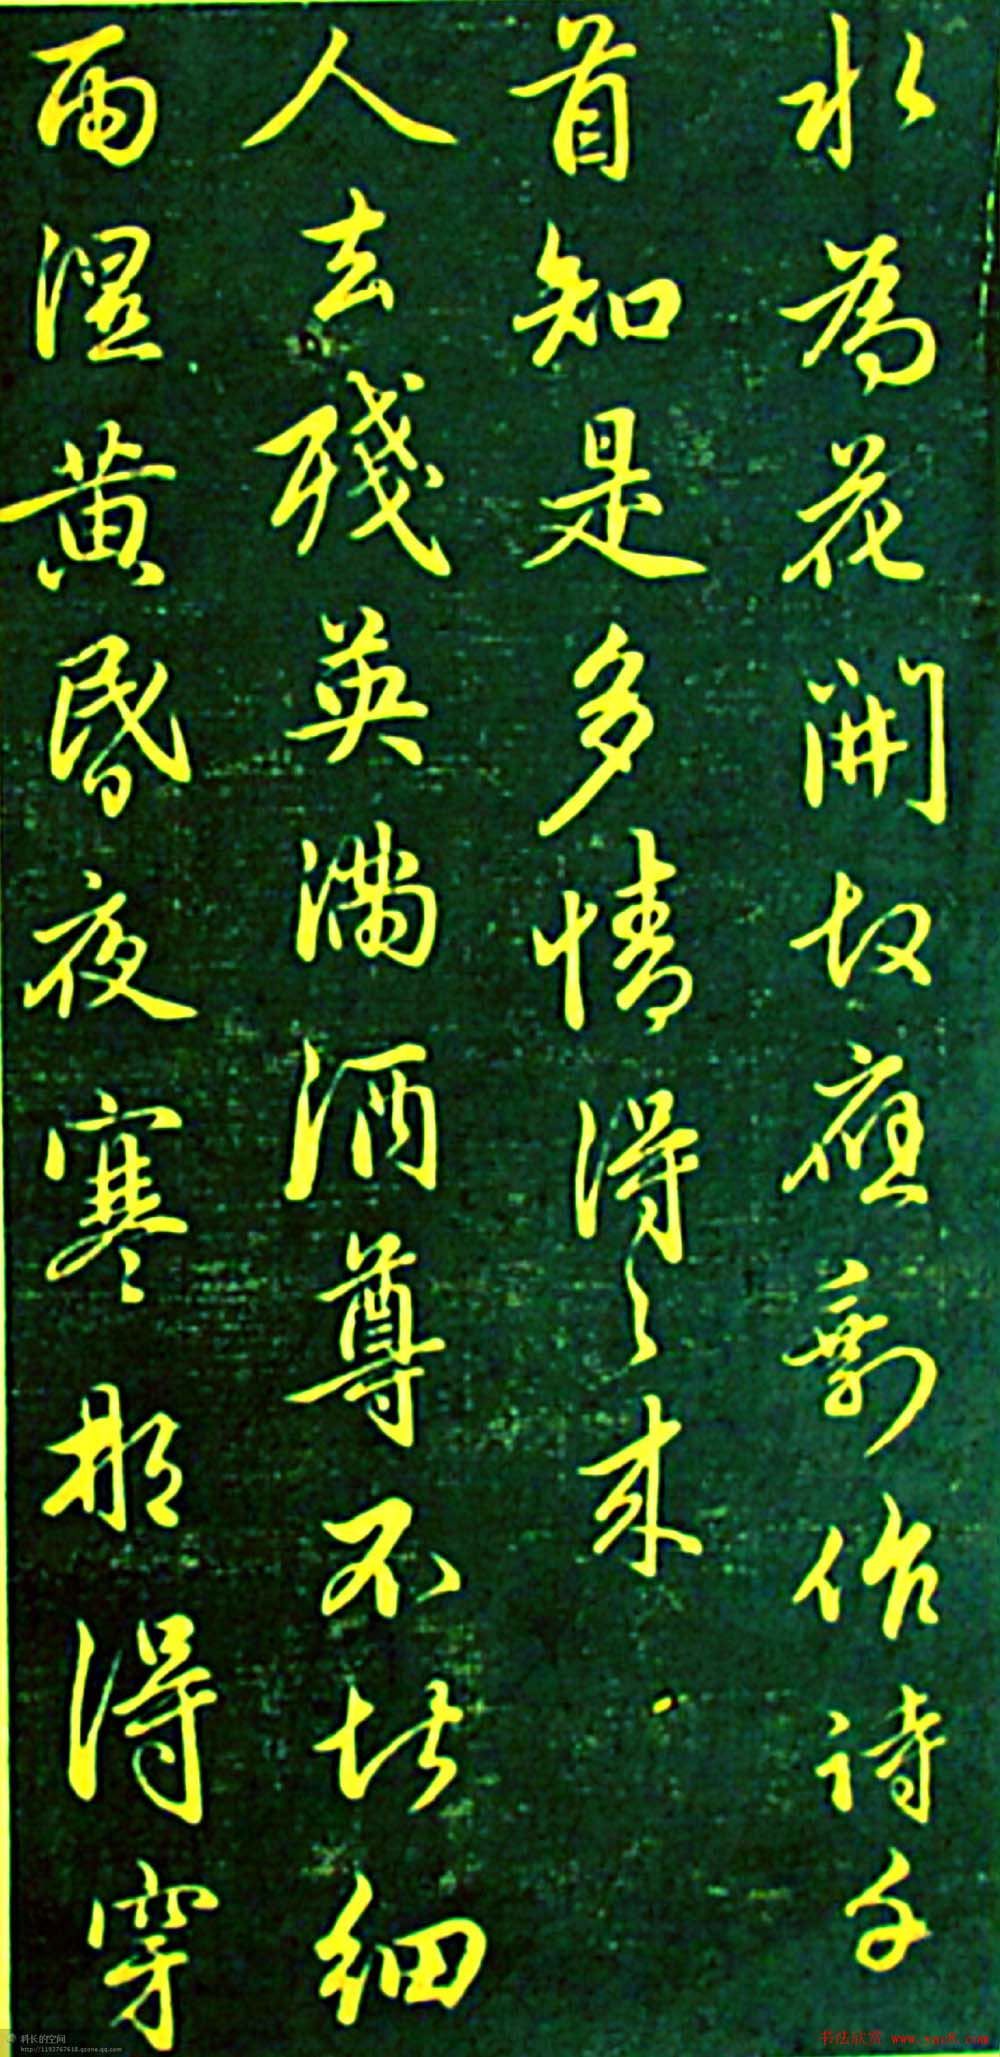 水為花開故應剩作詩千
首知是多情得々来
人去殘英滿酒尊不堪細
雨濕黄昏夜寒那得穿
科长的空间
http://1193767618.qzone.qq.com
书法欣赏 www.yac8.com